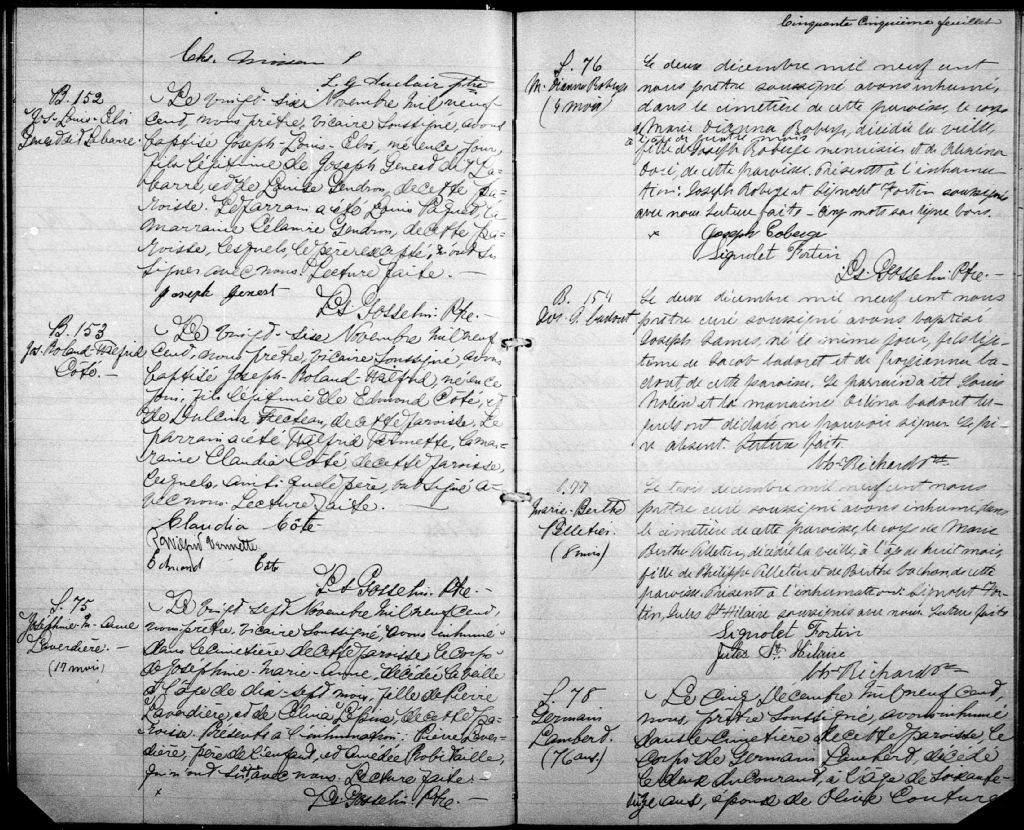 Chs.
L. G. Auclair Ptre
B. 152
Js-Louis-Eloi
Genest de Labarre.
Le vingt-six Novembre mil neuf
cent, nous prêtre, vicaire soussigné, avons
baptisé Joseph-Louis-Eloi, né ce jour,
fils légitime de Joseph Genest de La-
barre, et de Louise Gendron, de cette pa-
roisse. Le parrain a été Louis Paquet, la
marraine Célanire Gendron, de cette pa-
roisse, lesquels, le père excepté, n'ont su
signer avec nous. Lecture faite. —
Joseph Genest
Ls. Gosselin Ptre. —
B. 153
Jos-Roland-Walfrid
Coté. —
Le vingt-six Novembre mil neuf
cent, nous prêtre, vicaire soussigné, avons
baptisé Joseph-Roland-Walfrid, né ce
jour, fils légitime de Edmond Coté, et
de Dulcina Fecteau, de cette paroisse. Le
parrain a été Walfrid Vermette, la mar-
raine Claudia Coté de cette paroisse,
lesquels, ainsi que le père, ont signé a-
vec nous. Lecture faite.
Claudia Côté
Wilfrid Vermette
Edmond Coté
Ls Gosselin Ptre. —
S. 75
Joséphine-M-Anne
Laverdière. —
(17 mois)
Le vingt-sept Novembre mil neuf cent,
nous prêtre, vicaire soussigné, avons inhumé
dans le cimetière de cette paroisse le corps
de Joséphine-Marie-Anne, décédée la veille
à l'âge de dix-sept mois, fille de Pierre
Laverdière, et de Célina Lepine, de cette pa-
roisse. Présents à l'inhumation: Pierre Laver-
dière, père de l'enfant, et Amédée Robitaille,
qui n'ont signé avec nous. Lecture faite. —
x
Ls. Gosselin Ptre. —
Cinquante Cinquième feuillet
S. 76
M. Dianna Roberge
(4 mois)
Le deux décembre mil neuf cent
nous prêtre soussigné avons inhumé,
dans le cimetière de cette paroisse, le corps
de Marie Dianna Roberge, décédée la veille,
à l'âge de quatre mois
fille de Joseph Roberge menuisier et de
Doré, de cette paroisse. Présents à l'inhuma-
tion: Joseph Roberge et Signolet Fortin soussignés
avec nous lecture faite - cinq mots sur ligne bons.
x Joseph Roberge
Signolet Fortin
Ls. Gosselin Ptre. —
B. 154
Jos. J. Cadoret
Le deux décembre mil neuf cent nous
prêtre curé soussigné avons baptisé
Joseph James, né le même jour, fils légi-
time de Jacob Cadoret et de Ca-
doret de cette paroisse. Le parrain a été Louis
Nolin et la marraine Cadoret les-
quels ont déclaré ne pouvoir signer le pè-
re absent. Lecture faite
Richard Ptre
S. 77
Marie-Berthe
Pelletier.
(8 mois)
Le trois décembre mil neuf cent nous
prêtre curé soussigné avons inhumé, dans
le cimetière de cette paroisse, le corps de Marie
Berthe Pelletier, décédée la veille à l'âge de huit mois,
fille de Philippe Pelletier et de Berthe Vachon de cette
paroisse. Présents à l'inhumation: Signolet For-
tin, Jules St Hilaire soussignés avec nous. Lecture faite
Signolet Fortin
Jules St. Hilaire
Richard Ptre
S. 78
Germain
Lambert.
(76 ans.)
Le cinq Décembre mil neuf cent,
nous, prêtre soussigné, avons inhumé
dans le cimetière de cette paroisse le
corps de Germain Lambert, décédé
le deux du courant, à l'âge de soixante-
seize ans, époux de Olive Couture